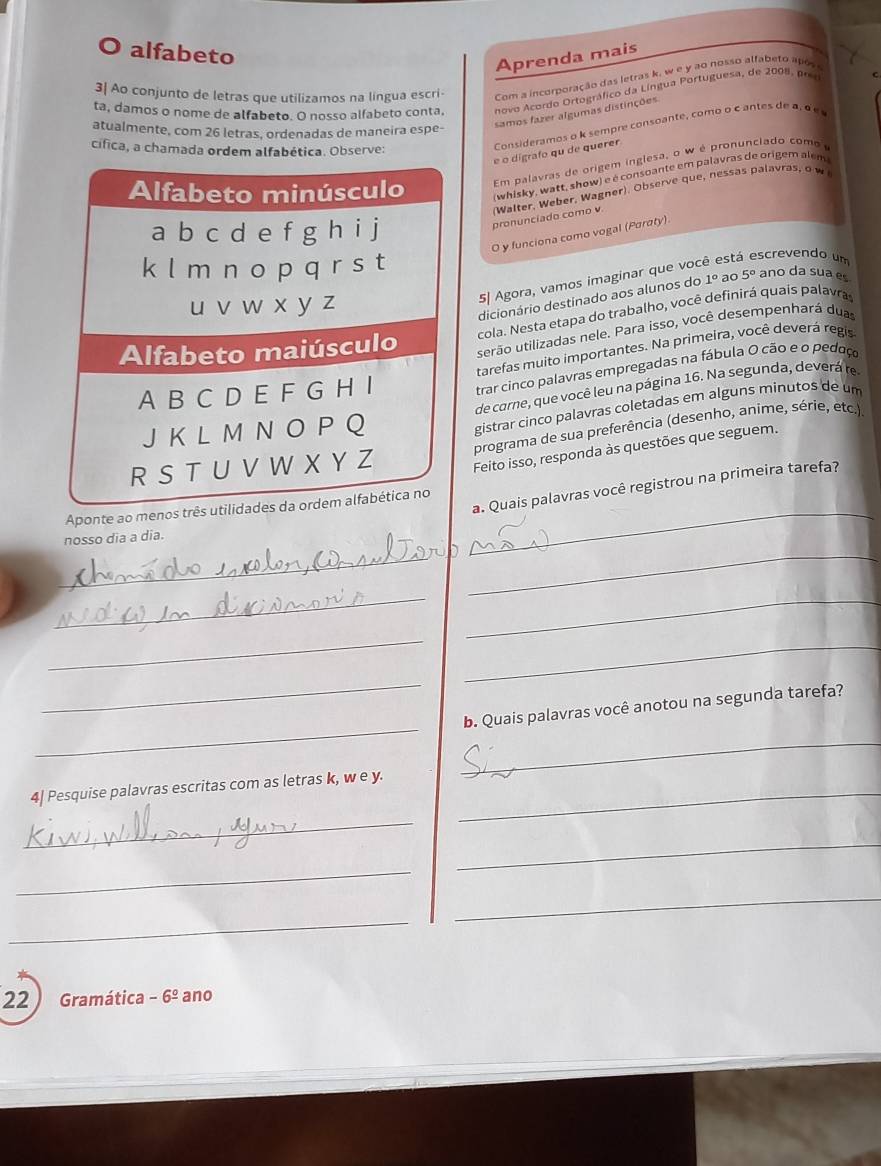 O alfabeto
3| Ao conjunto de letras que utilizamos na língua escri-
ta, damos o nome de alfabeto. O nosso alfabeto conta,
atualmente, com 26 letras, ordenadas de maneira espe-
cífica, a chamada ordem alfabética. Observe:
Alfabeto minúsculo
a b c d e f g h i j
k l m n o p q r s t
u v w x y z
Alfabeto maiúsculo
A B C D E F G H I
J K L M N O P Q
R S T U V W X Y Z
Aponte ao menos três utilidades da ordem alfabética no
nosso dia a dia.
chamada escolar, consultorio
medico, em dicionario
4| Pesquise palavras escritas com as letras k, w e y.
Kiwi, Willian, Yuri
Aprenda mais
Com a incorporação das letras k, w e y ao nosso alfabeto após o
novo Acordo Ortográfico da Língua Portuguesa, de 2008, preci
samos fazer algumas distinções.
Consideramos o k sempre consoante, como o c antes de a, o e u
e o dígrafo qu de querer.
Em palavras de origem inglesa, o w é pronunciado como u
(whisky, watt, show) e é consoante em palavras de origem alem
(Walter, Weber, Wagner). Observe que, nessas palavras, o w é
pronunciado como v.
O y funciona como vogal (Paraty).
5| Agora, vamos imaginar que você está escrevendo um
dicionário destinado aos alunos do 1º ao 5º ano da sua es
cola. Nesta etapa do trabalho, você definirá quais palavras
serão utilizadas nele. Para isso, você desempenhará duas
tarefas muito importantes. Na primeira, você deverá regis-
trar cinco palavras empregadas na fábula O cão e o pedaço
de carne, que você leu na página 16. Na segunda, deverá re-
gistrar cinco palavras coletadas em alguns minutos de um
programa de sua preferência (desenho, anime, série, etc.).
Feito isso, responda às questões que seguem.
a. Quais palavras você registrou na primeira tarefa?
não
b. Quais palavras você anotou na segunda tarefa?
22 Gramática – 6º ano